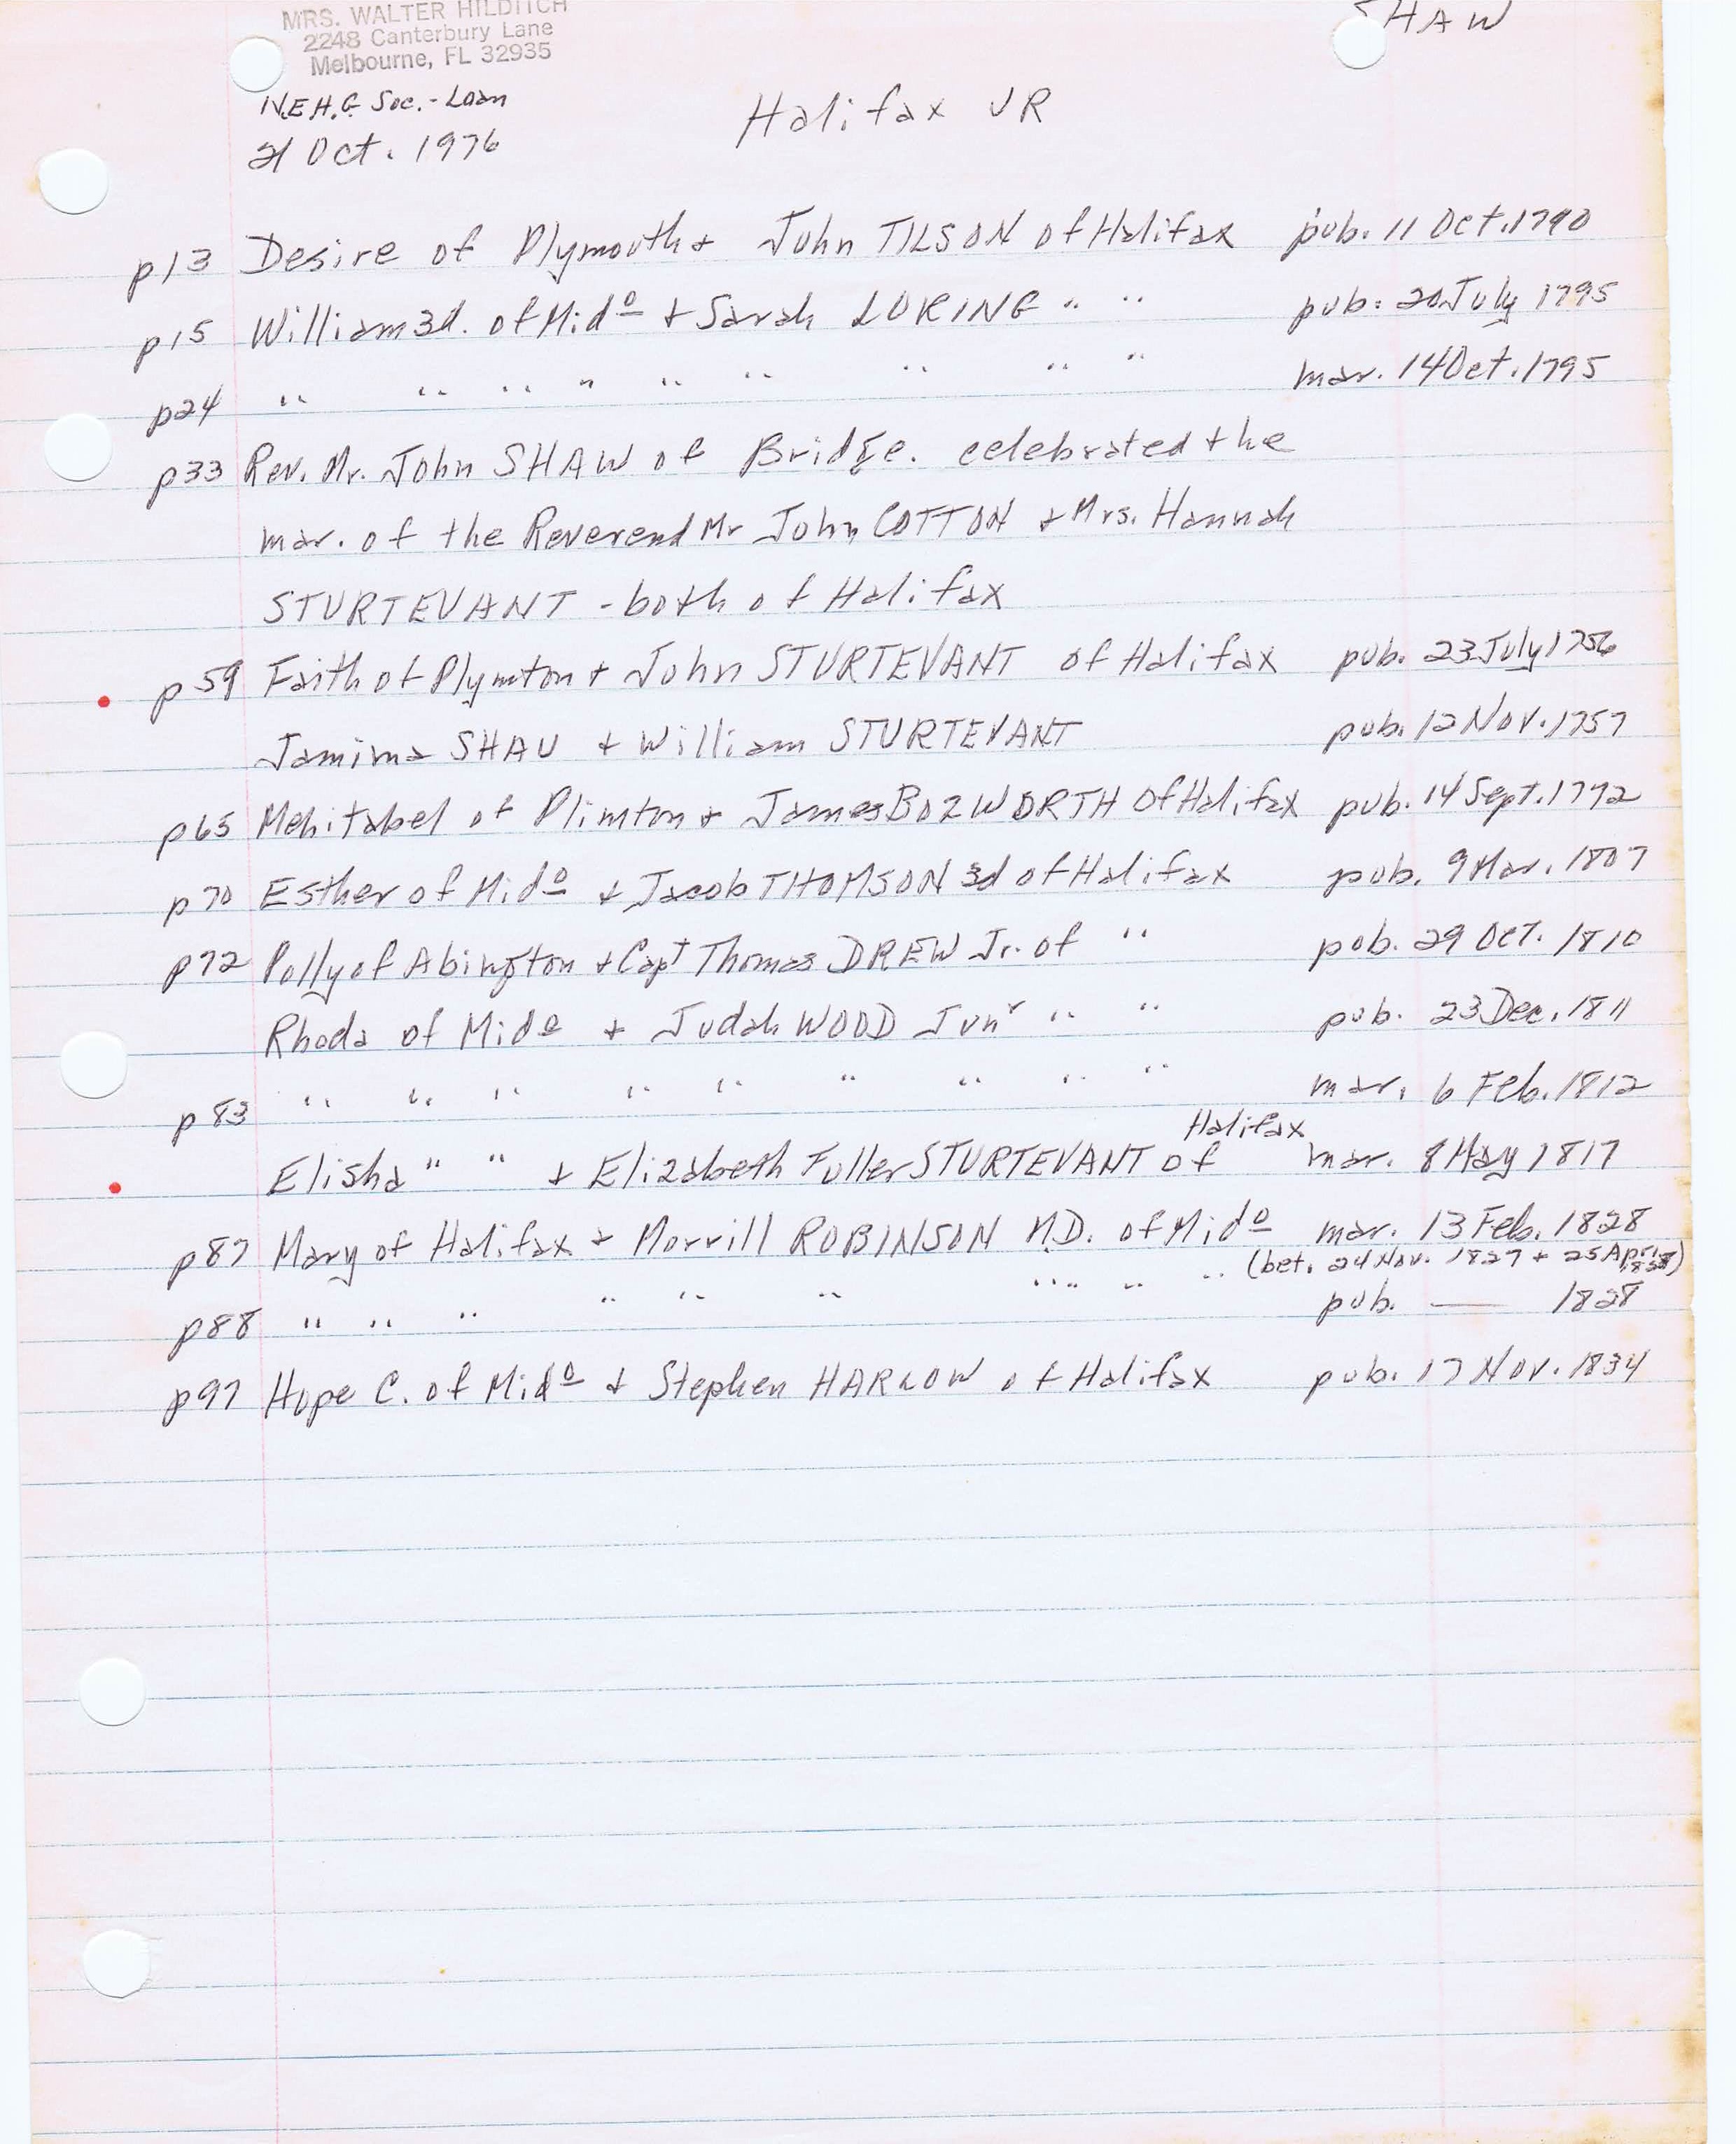 MRS. WALTER HILDITCH
SHAW
2248 Canterbury Lane
Melbourne, FL 32935
N.E.H.G. Soc. - Loan
Halifax VR
21 Oct. 1976
p13 Desire of Plymouth + John TILSON of Halifax pub. 11 Oct. 1790
p15 William 3d. of Midº + Sarah LORING " " pub. 20 July 1795
p24 " " " " " " " " " mar. 14 Oct. 1795
p33 Rev. Mr. John SHAW of Bridge. celebrated the
mar. of the Reverend Mr John COTTON + Mrs. Hannah
STURTEVANT - both of Halifax
p59 Faith of Plymton + John STURTEVANT of Halifax pub. 23 July 1756
Jamima SHAW + William STURTEVANT pub. 12 Nov. 1757
p65 Mehitabel of Plimton + James BOZWORTH Of Halifax pub. 14 Sept. 1792
p70 Esther of Midº + Jacob THOMSON 3d of Halifax pub. 9 Mar. 1807
p72 Polly of Abington + Capt Thomas DREW Jr. of " pub. 29 Oct. 1810
Rhoda of Midº + Judah WOOD Junr " " pub. 23 Dec. 1811
p83 " " " " " " " " " mar. 6 Feb. 1812
Halifax
Elisha " " + Elizabeth Fuller STURTEVANT of mar. 8 May 1817
p87 Mary of Halifax + Morrill ROBINSON M.D. of Midº mar. 13 Feb. 1828
(bet. 24 Nov. 1827 + 25 April 1828)
p88 " " " " " " " " " " pub. — 1828
p97 Hope C. of Midº + Stephen HARLOW of Halifax pub. 17 Nov. 1834